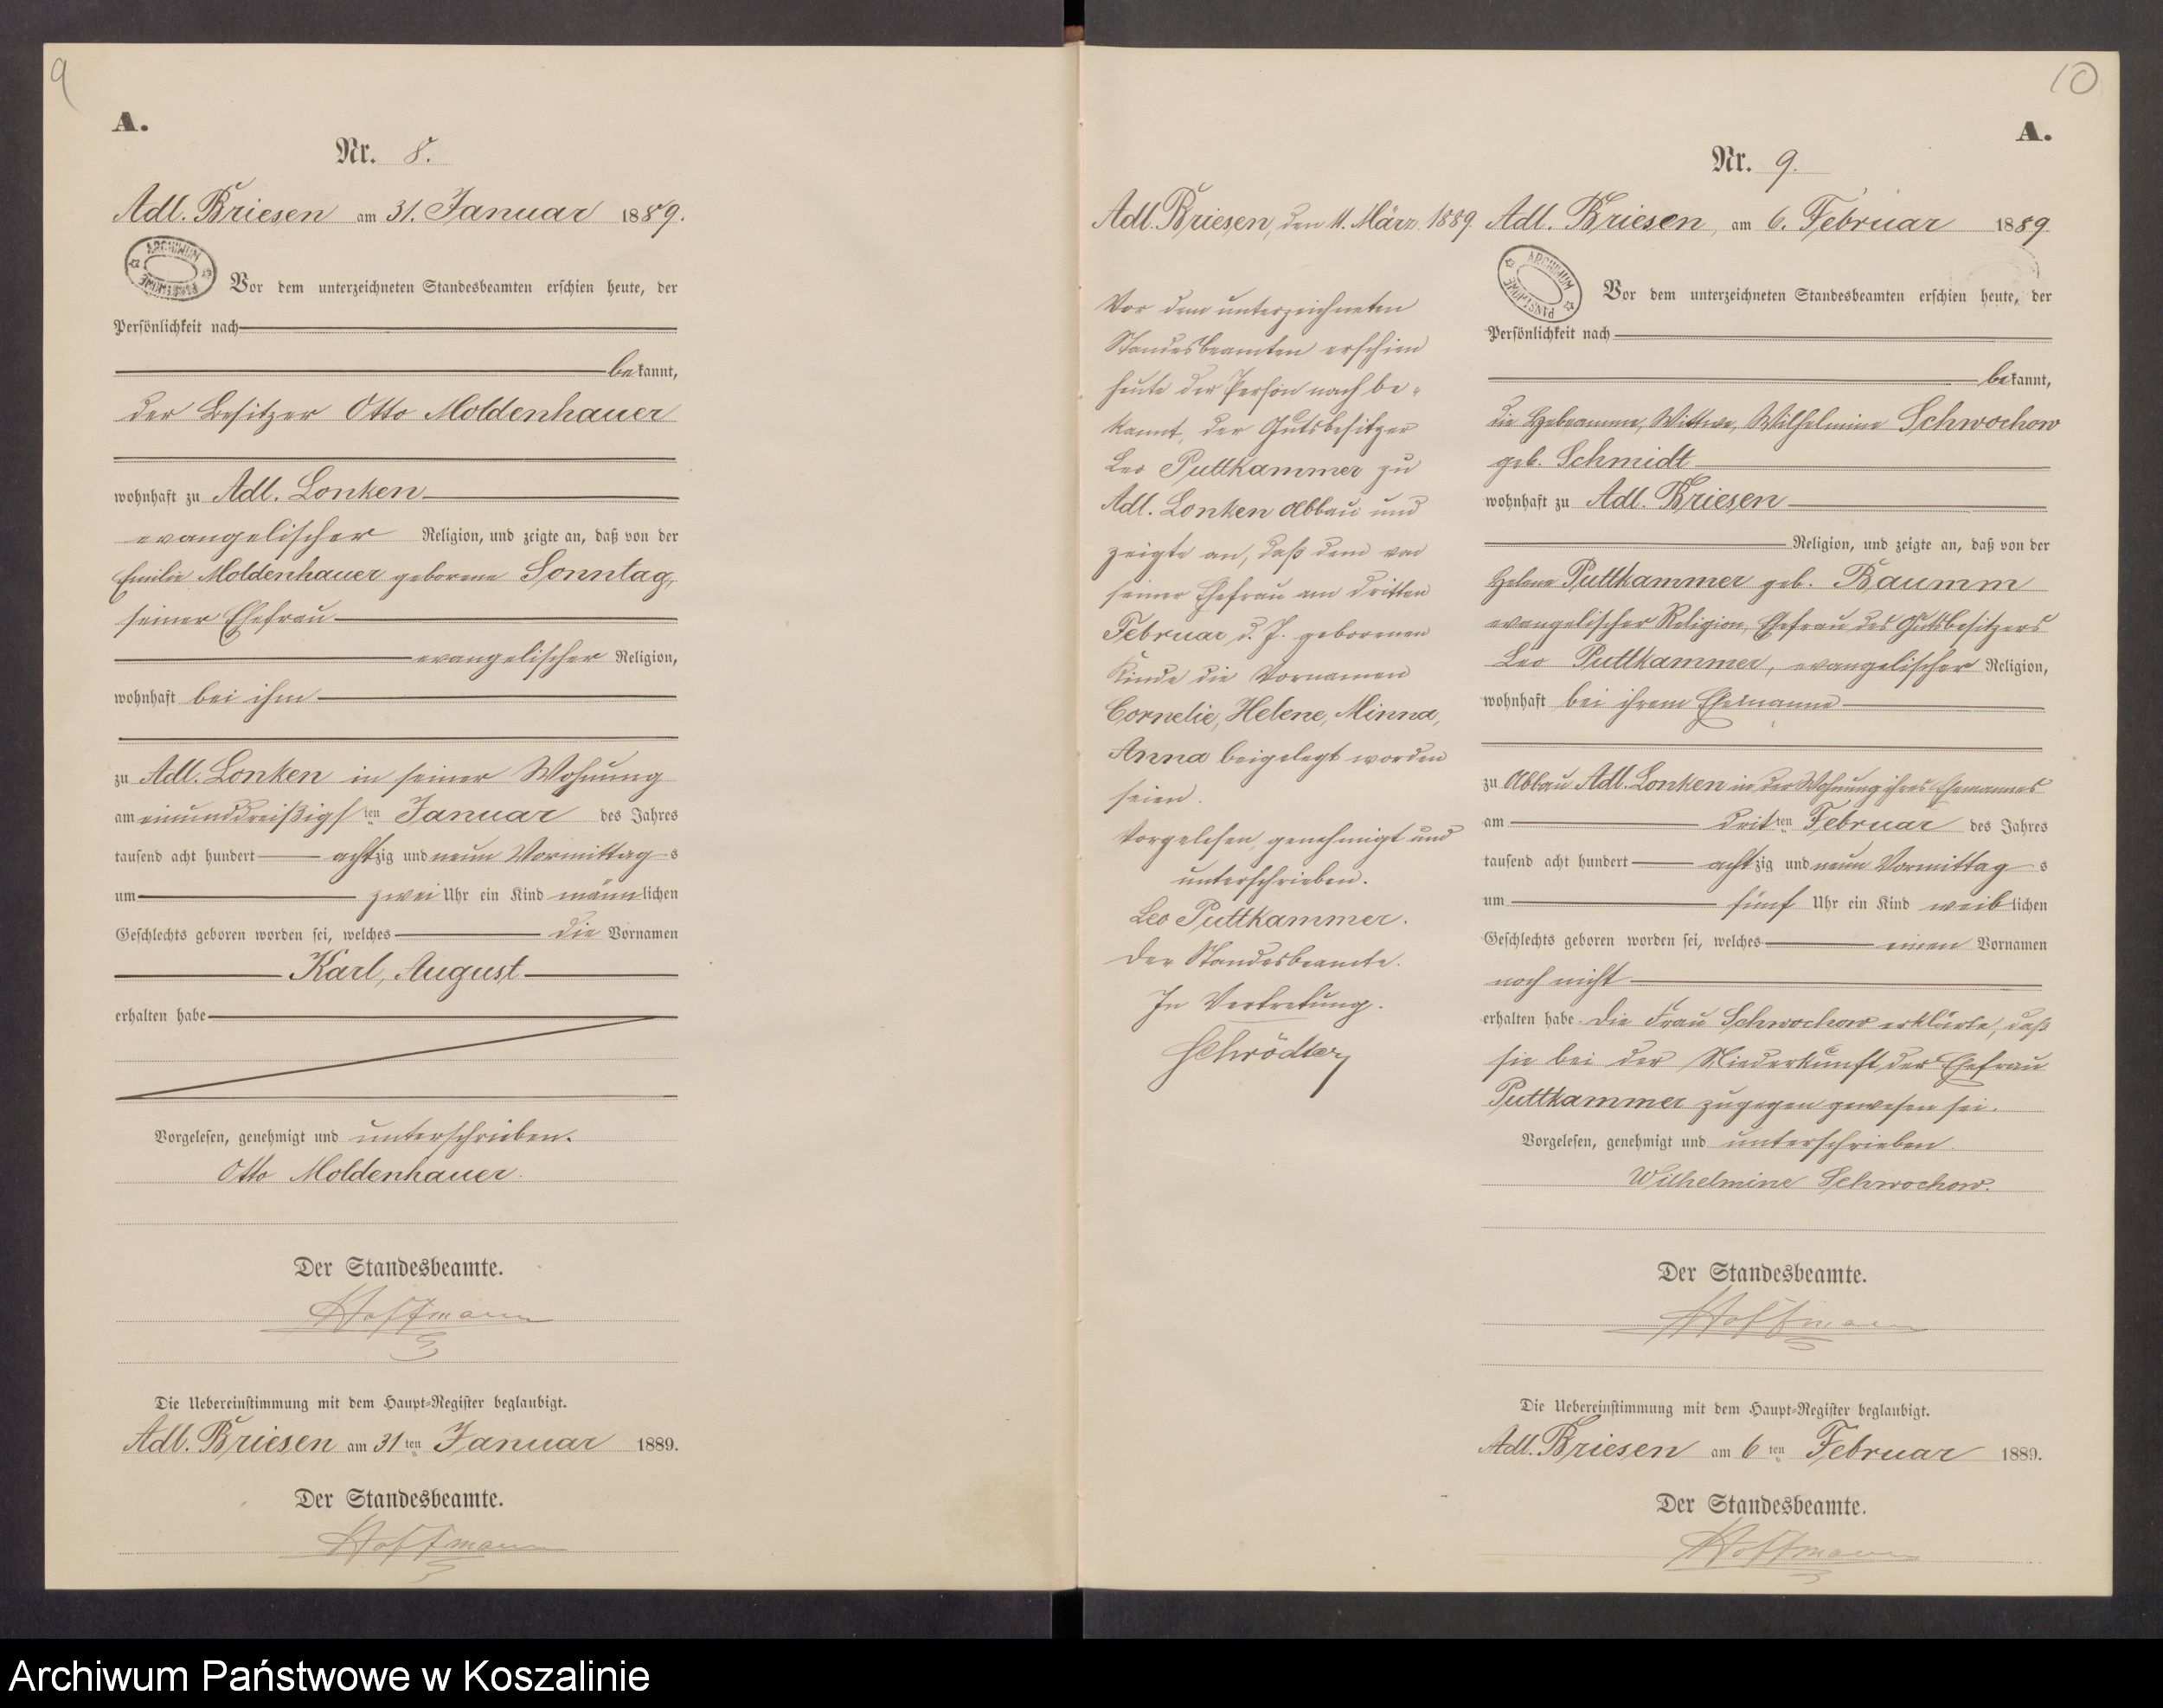 9
A.
Nr. 8.
Adl. Briesen am 31. Januar 1889.
ARCHIWUM PAŃSTWOWE
Vor dem unterzeichneten Standesbeamten erschien heute, der
Persönlichkeit nach
bekannt,
der Besitzer Otto Moldenhauer
wohnhaft zu Adl. Lonken
evangelischer Religion, und zeigte an, daß von der
Emilie Moldenhauer geborene Sonntag,
seiner Ehefrau
evangelischer Religion,
wohnhaft bei ihm
zu Adl. Lonken in seiner Wohnung
am einunddreißigsten Januar des Jahres
tausend acht hundert achtzig und neun Vormittags
um zwei Uhr ein Kind männlichen
Geschlechts geboren worden sei, welches die Vornamen
Karl, August
erhalten habe
Vorgelesen, genehmigt und unterschrieben.
Otto Moldenhauer.
Der Standesbeamte.
Hoffmann
Die Uebereinstimmung mit dem Haupt-Register beglaubigt.
Adl. Briesen am 31ten Januar 1889.
Der Standesbeamte.
Hoffmann
Adl. Briesen, den 11. März 1889.
Vor dem unterzeichneten
Standesbeamten erschien
heute der Person nach be-
kannt, der Gutsbesitzer
Leo Puttkammer zu
Adl. Lonken Abbau und
zeigte an, daß dem von
seiner Ehefrau am dritten
Februar d. J. geborenen
Kinde die Vornamen
Cornelie, Helene, Minna,
Anna beigelegt worden
seien.
Vorgelesen, genehmigt und
unterschrieben.
Leo Puttkammer.
Der Standesbeamte.
In Vertretung.
Schrödter
10
A.
Nr. 9.
Adl. Briesen, am 6. Februar 1889
ARCHIWUM PAŃSTWOWE
Vor dem unterzeichneten Standesbeamten erschien heute, der
Persönlichkeit nach
bekannt,
die Hebeamme, Wittwe, Wilhelmine Schwochow
geb. Schmidt
wohnhaft zu Adl. Briesen
Religion, und zeigte an, daß von der
Helene Puttkammer geb. Baumm
evangelischer Religion, Ehefrau des Gutsbesitzers
Leo Puttkammer, evangelischer Religion,
wohnhaft bei ihrem Ehemanne
zu Abbau Adl. Lonken in der Wohnung ihres Ehemannes
am dritten Februar des Jahres
tausend acht hundert achtzig und neun Vormittags
um fünf Uhr ein Kind weiblichen
Geschlechts geboren worden sei, welches einen Vornamen
noch nicht
erhalten habe. Die Frau Schwochow erklärte, daß
sie bei der Niederkunft der Ehefrau
Puttkammer zugegen gewesen sei.
Vorgelesen, genehmigt und unterschrieben.
Wilhelmine Schwochow.
Der Standesbeamte.
Hoffmann
Die Uebereinstimmung mit dem Haupt-Register beglaubigt.
Adl. Briesen am 6ten Februar 1889.
Der Standesbeamte.
Hoffmann
Archiwum Państwowe w Koszalinie